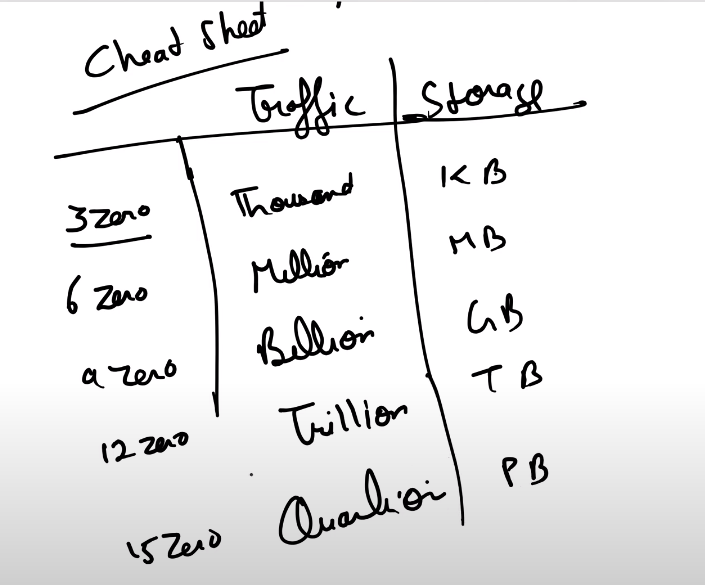 Cheat Sheet
Traffic Storage
3 Zero Thousand KB
6 Zero Million MB
9 Zero Billion GB
12 Zero Trillion TB
15 Zero PB